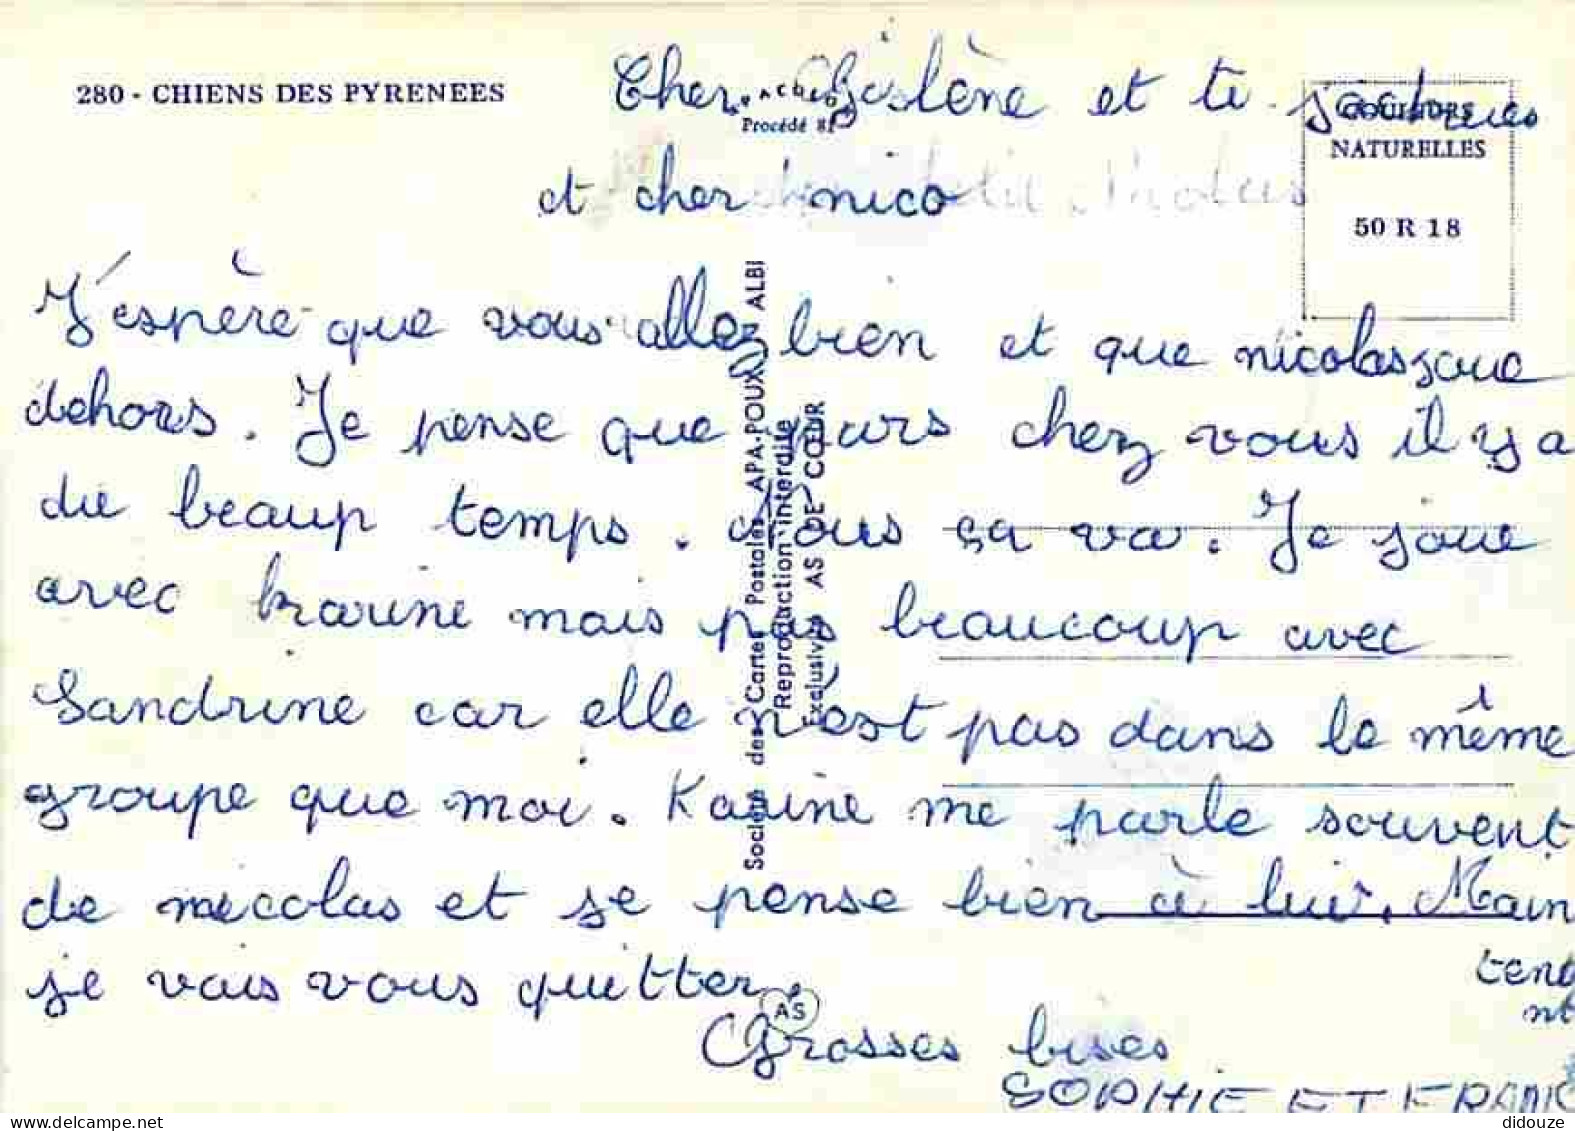 280 - CHIENS DES PYRENEES
Cher Gislène et ti Jacques
Procédé 81
COULEURS
NATURELLES
50 R 18
et cher nico
J'espère que vous allez bien et que nicolas joue
dehors. Je pense que chez vous il y a
du beaup temps. Nous ça va. Je joue
avec karine mais pas beaucoup avec
Sandrine car elle n'est pas dans le même
groupe que moi. Karine me parle souvent
de nicolas et se pense bien à lui. Main
tena
nt
je vais vous quitter.
Grosses bises
SOPHIE ET FRANK
Société des Cartes Postales APA-POUX ALBI
Reproduction interdite
Exclusivité AS DE CŒUR
AS
didouze